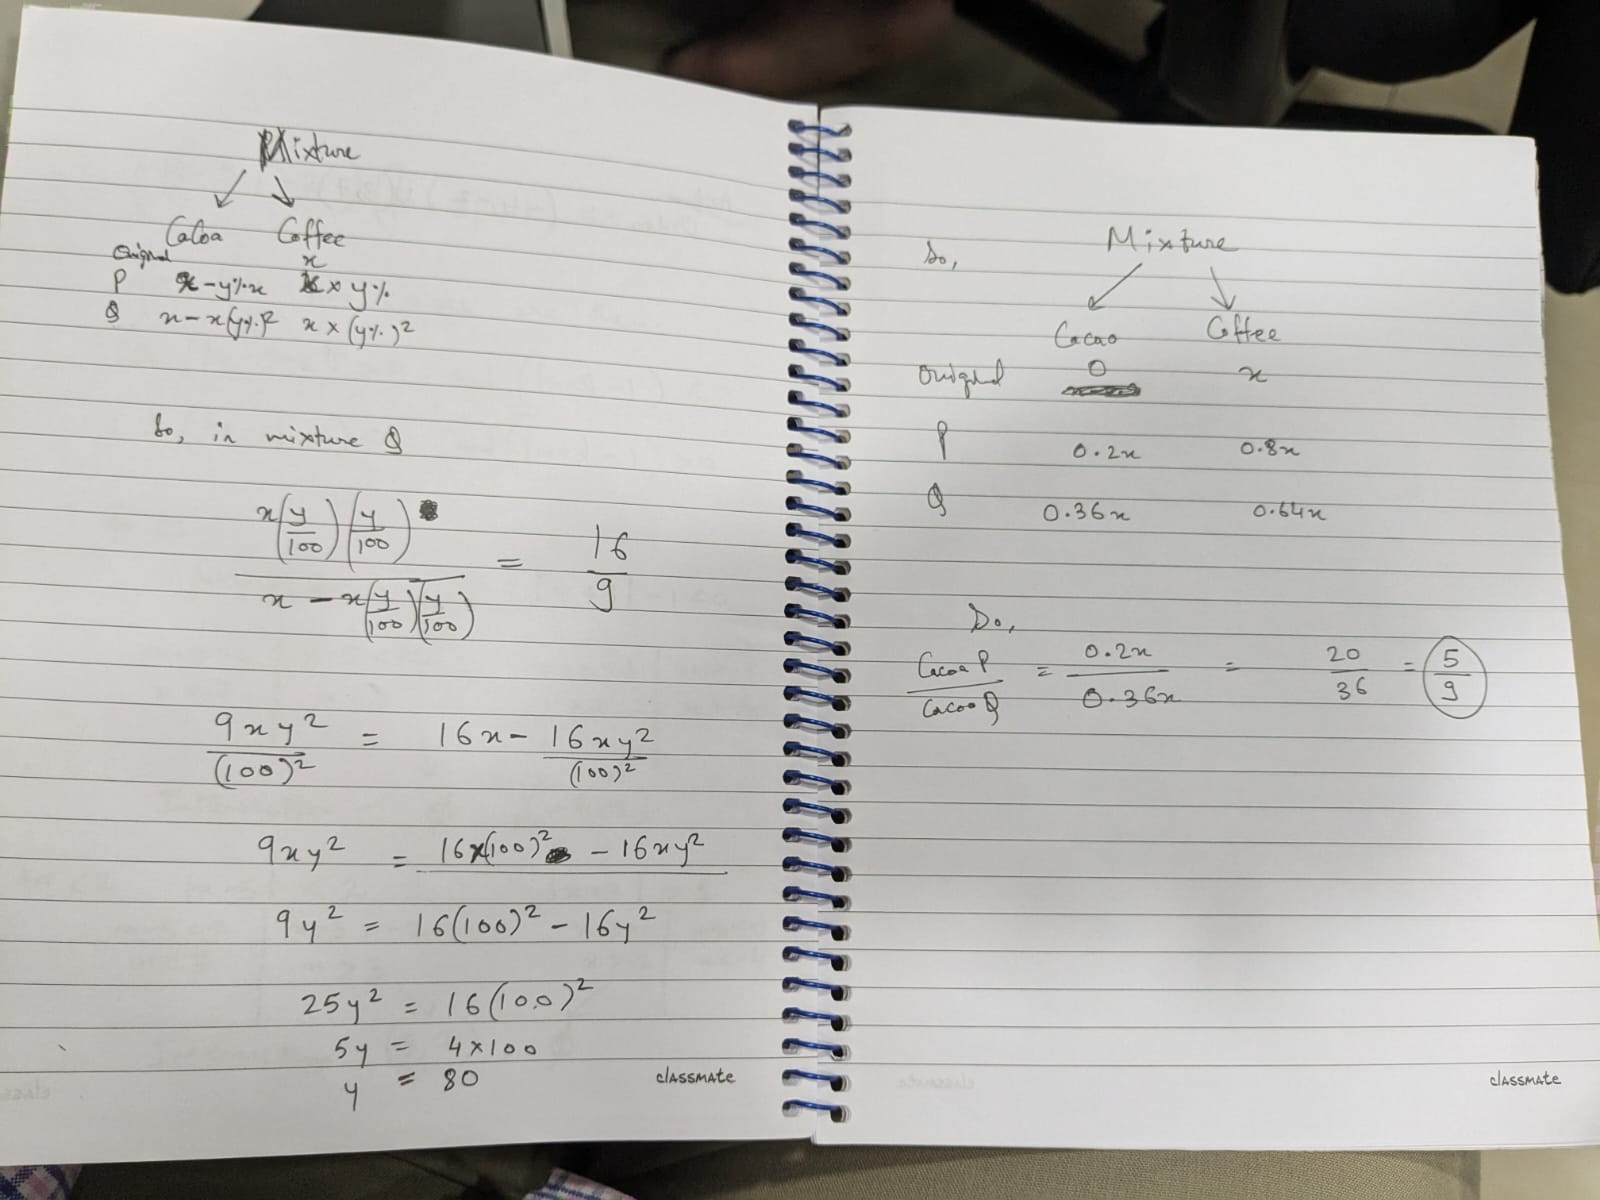 Mixture
Cacoa Coffee
Original x
P x-y%x x × y%
Q x - x(y%)² x × (y%)²
So, in mixture Q
x(y/100)(y/100) / x - x(y/100)(y/100) = 16/9
9xy²/(100)² = 16x - 16xy²/(100)²
9xy² = 16x(100)² - 16xy²
9y² = 16(100)² - 16y²
25y² = 16(100)²
5y = 4×100
y = 80
classmate
So,
Mixture
Cacao Coffee
Original 0 x
P 0.2x 0.8x
Q 0.36x 0.64x
So,
Cacoa P / Cacoa Q = 0.2x / 0.36x = 20/36 = 5/9
classmate